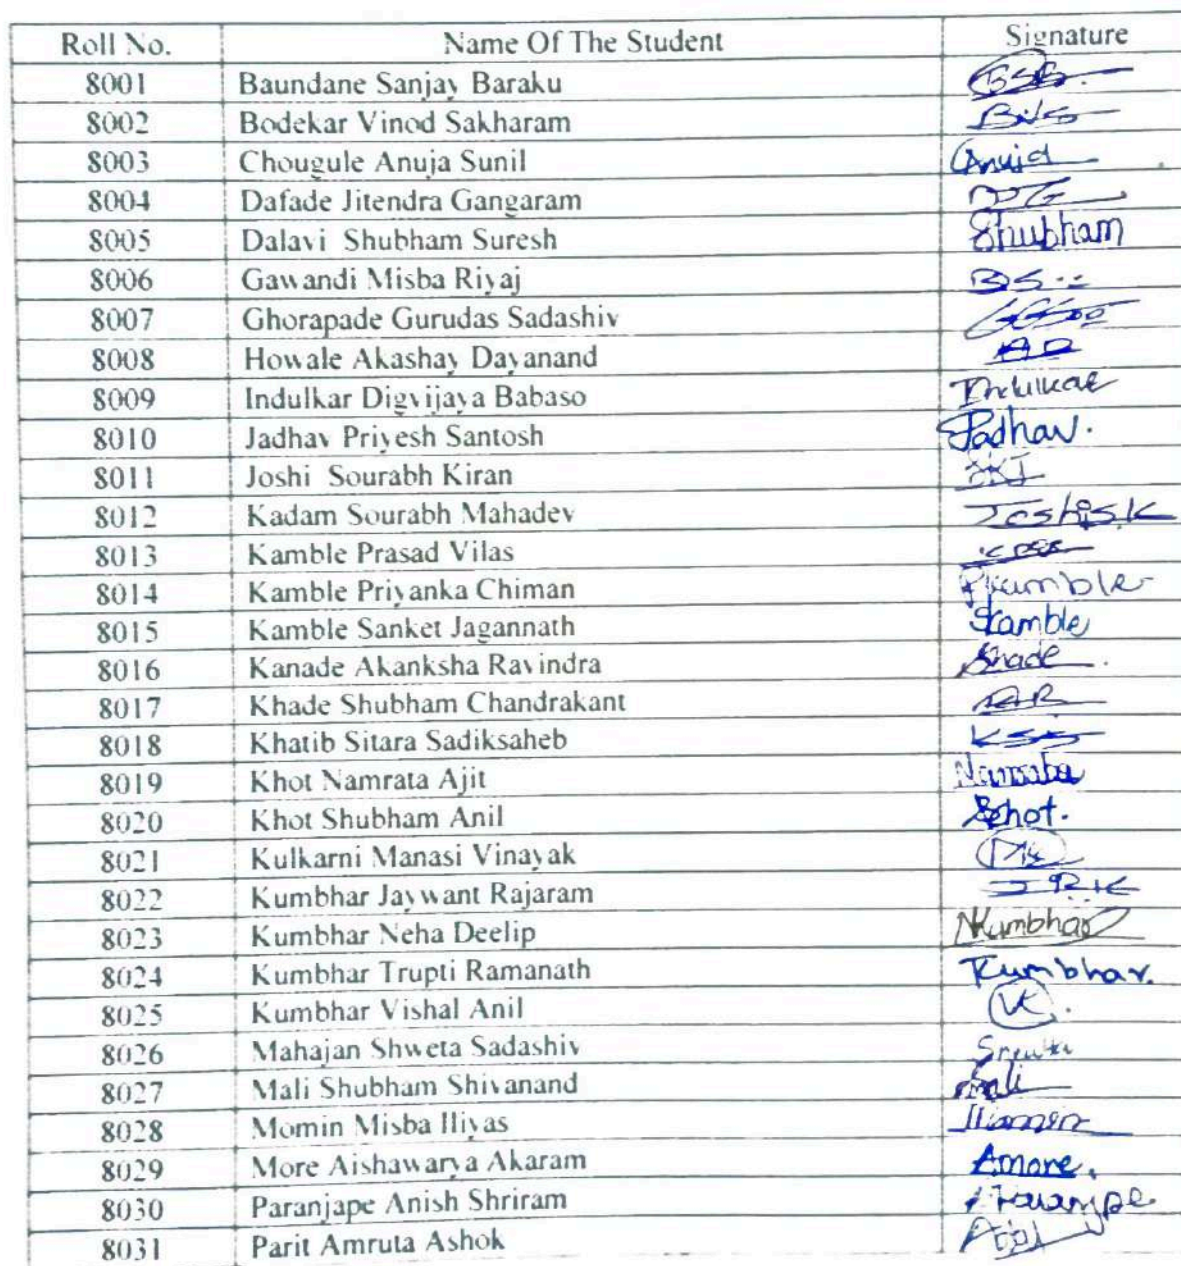 Roll No. Name Of The Student Signature
8001 Baundane Sanjay Baraku BSB
8002 Bodekar Vinod Sakharam BVS
8003 Chougule Anuja Sunil Anuja
8004 Dafade Jitendra Gangaram
8005 Dalavi Shubham Suresh Shubham
8006 Gawandi Misba Riyaj
8007 Ghorapade Gurudas Sadashiv
8008 Howale Akashay Dayanand AD
8009 Indulkar Digvijaya Babaso Indulkar
8010 Jadhav Priyesh Santosh Jadhav.
8011 Joshi Sourabh Kiran
8012 Kadam Sourabh Mahadev Joshi S K
8013 Kamble Prasad Vilas
8014 Kamble Priyanka Chiman PKamble
8015 Kamble Sanket Jagannath SKamble
8016 Kanade Akanksha Ravindra
8017 Khade Shubham Chandrakant
8018 Khatib Sitara Sadiksaheb KSS
8019 Khot Namrata Ajit Namrata
8020 Khot Shubham Anil Skhot.
8021 Kulkarni Manasi Vinayak
8022 Kumbhar Jaywant Rajaram JRK
8023 Kumbhar Neha Deelip NKumbhar
8024 Kumbhar Trupti Ramanath Tkumbhar.
8025 Kumbhar Vishal Anil VK.
8026 Mahajan Shweta Sadashiv
8027 Mali Shubham Shivanand
8028 Momin Misba Iliyas
8029 More Aishawarya Akaram Amore.
8030 Paranjape Anish Shriram
8031 Parit Amruta Ashok